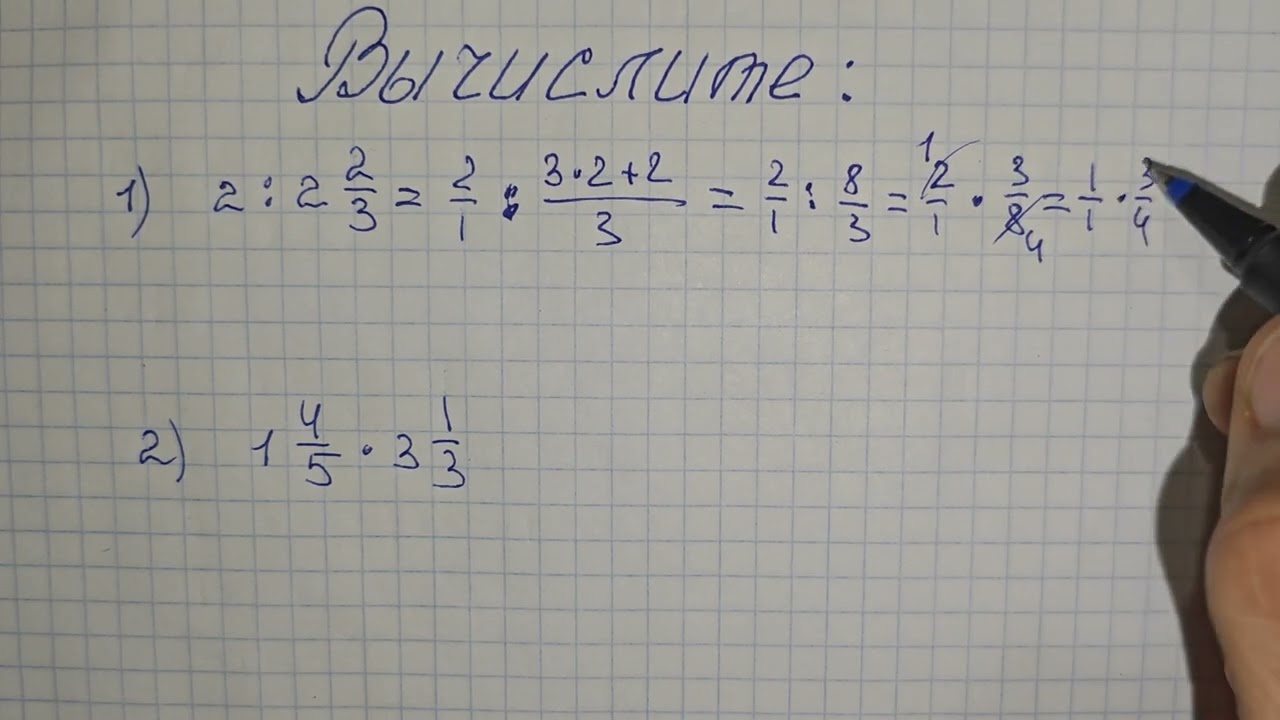 Вычислите:
1) 2 : 2 2/3 = 2/1 : (3·2+2)/3 = 2/1 : 8/3 = 2/1 1 · 3/8 4 = 1/1 · 3/4
2) 1 4/5 · 3 1/3